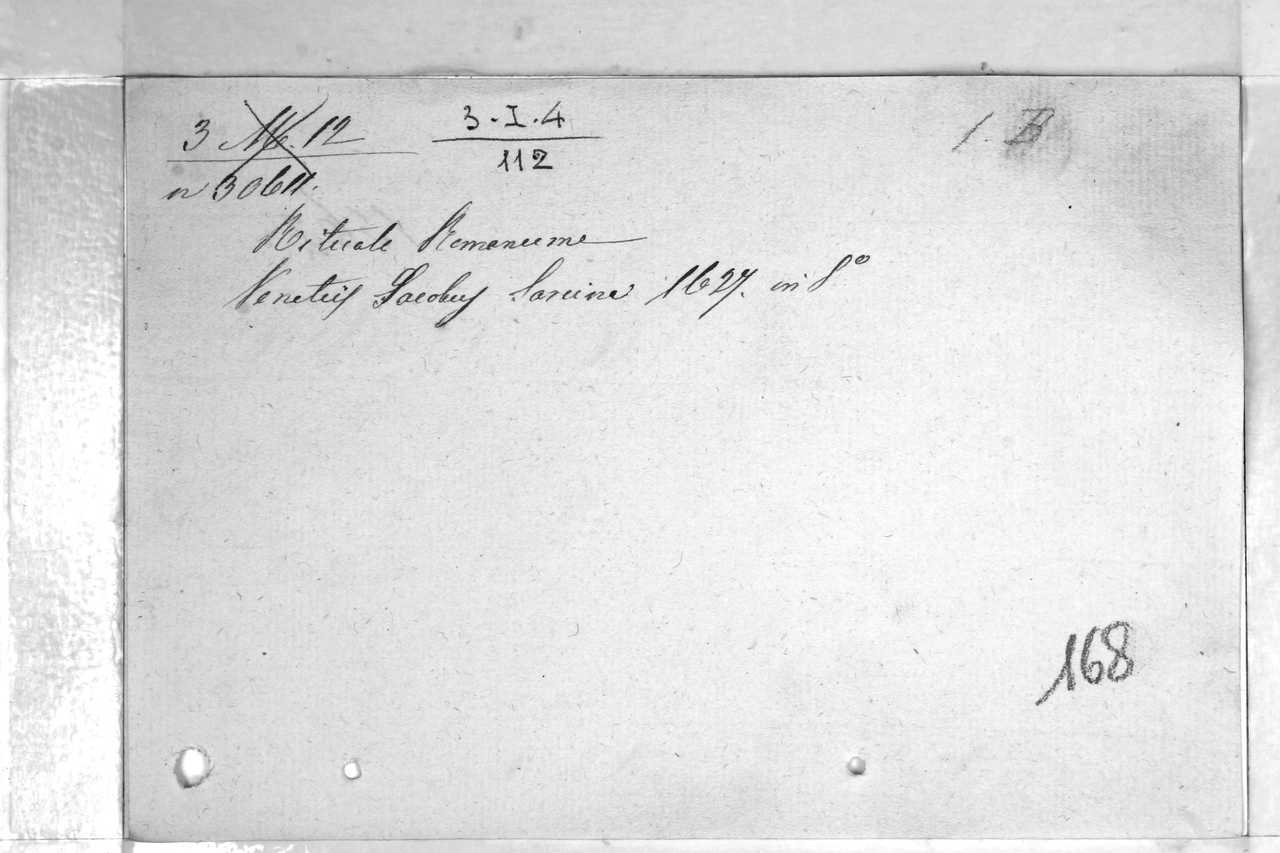 3 M. 12
3·I·4
1. B
112
n 30611.
Rituale Romanum
Venetiis Jacobus Sarcina 1627. in 8°
168